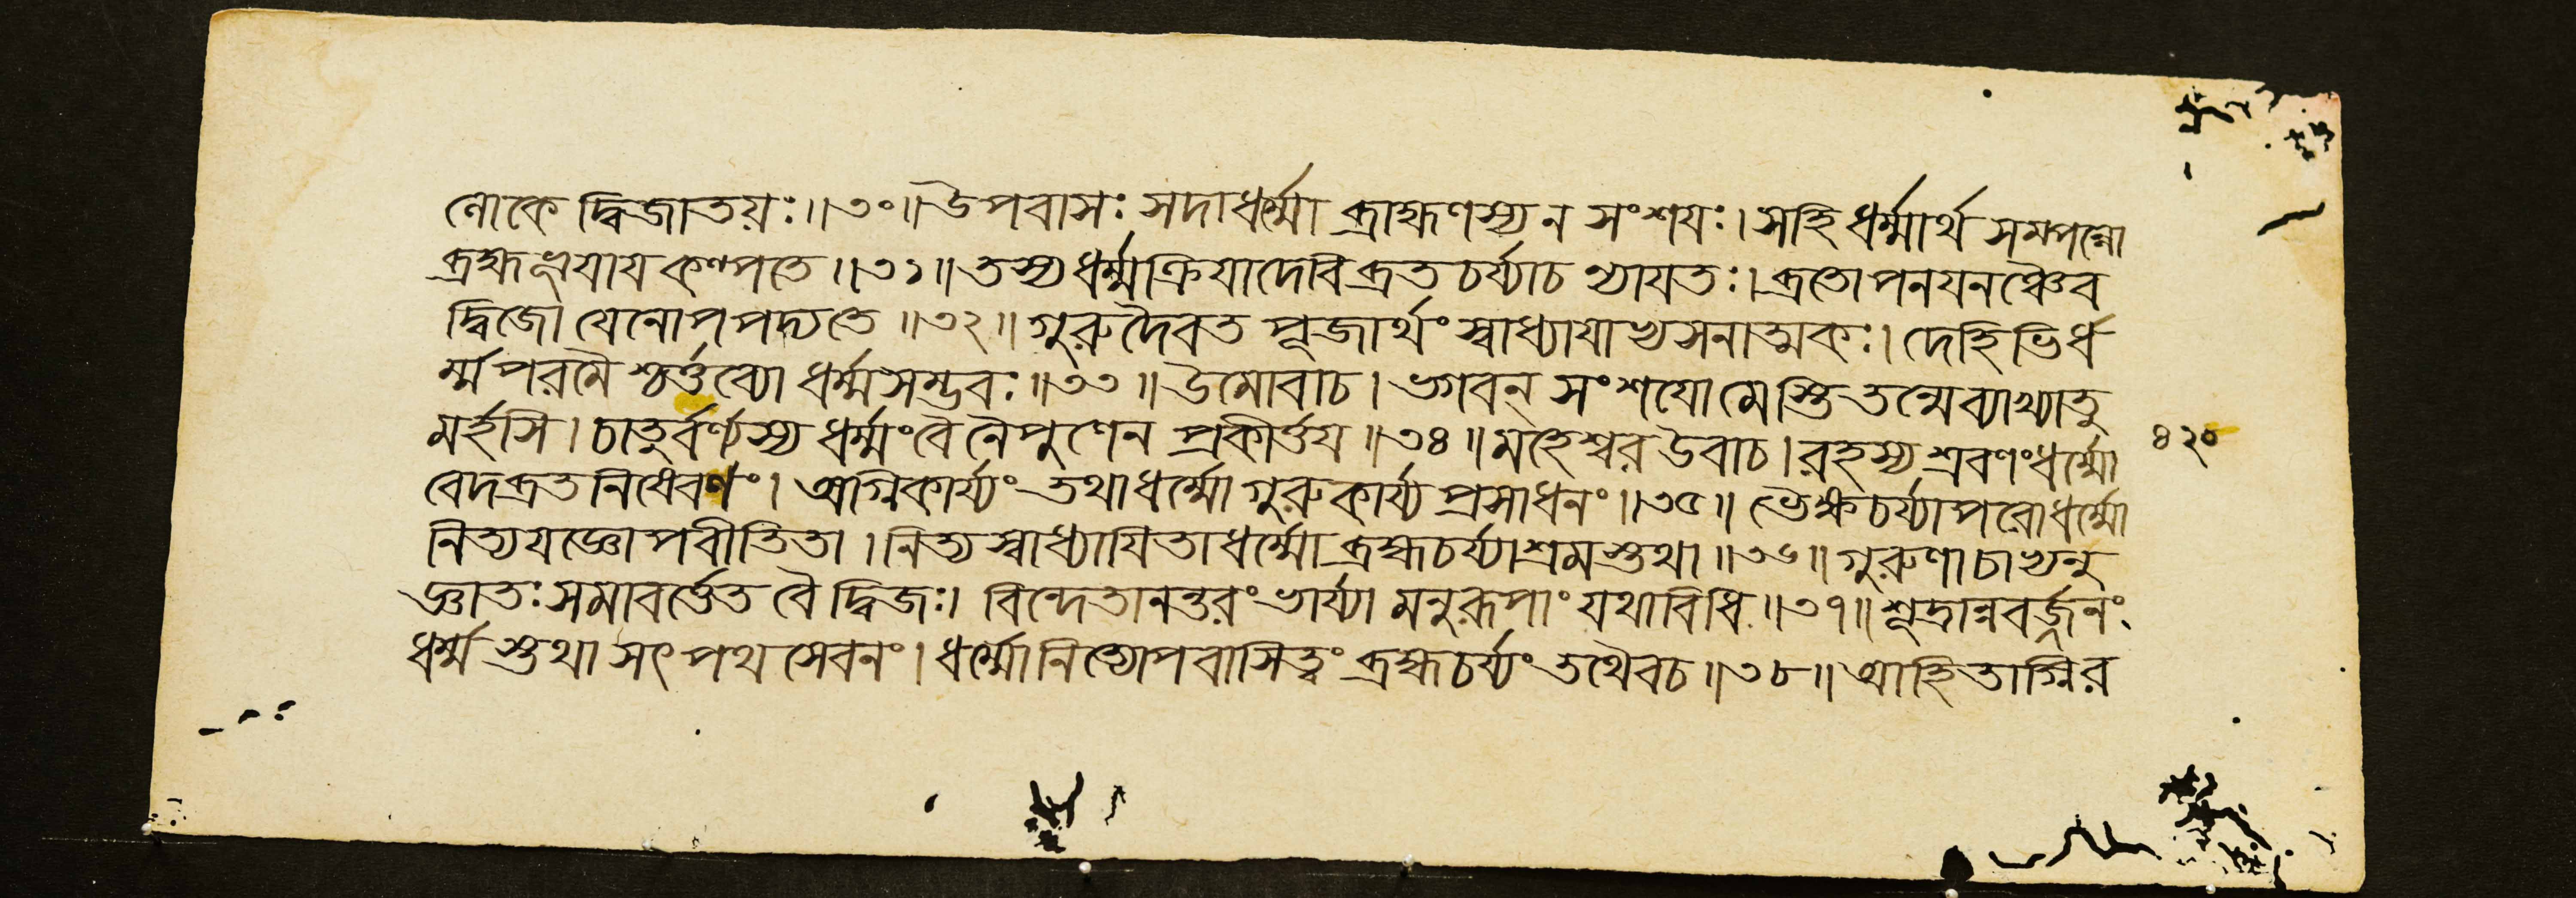 লোকে দ্বিজাতয়ঃ॥৩০॥উপবাসঃ সদাধর্ম্মো ব্রাহ্মণস্য ন সংশযঃ। সহি ধর্ম্মার্থ সমপন্নো
ব্রহ্মভূযায কল্পতে॥৩১॥তস্য ধর্ম্মক্রিযাদেবি ব্রত চর্য্যাচ ন্যাযতঃ। ব্রতোপনযনঞ্চৈব
দ্বিজো যেনোপপদ্যতে॥৩২॥গুরুদৈবত পূজার্থং স্বাধ্যাযাভ্যসনাত্মকঃ। দেহিভির্ধ
র্ম্মপরমৈ শ্চর্ত্তব্যো ধর্ম্মসম্ভবঃ॥৩৩॥উমোবাচ। ভগবন্ সংশযো মেস্তি তন্মে ব্যাখ্যাতু
মর্হসি। চাতুর্বর্ণ্যস্য ধর্ম্মং বৈ নৈপুণেন প্রকীর্ত্তয॥৩৪॥মহেশ্বর উবাচ। রহস্য শ্রবণংধর্ম্মো
বেদব্রত নিষেবণং। অগ্নিকার্য্যং তথা ধর্ম্মো গুরুকার্য্য প্রসাধনং॥৩৫॥ভৈক্ষচর্য্যাপরোধর্ম্মো
নিত্যযজ্ঞোপবীতিতা। নিত্য স্বাধ্যাযিতাধর্ম্মো ব্রহ্মচর্য্যাশ্রমস্তথা॥৩৬॥গুরুণা চাভ্যনু
জ্ঞাতঃ সমাবর্ত্তেত বৈ দ্বিজঃ। বিন্দেতানন্তরং ভার্য্যা মনুরূপাং যথাবিধি॥৩৭॥শূদ্রান্নবর্জ্জনং
ধর্ম্ম স্তথা সৎপথ সেবনং। ধর্ম্মো নিত্যোপবাসিত্বং ব্রহ্মচর্য্যং তথৈবচ॥৩৮॥আহিতাগ্নির
৪২০